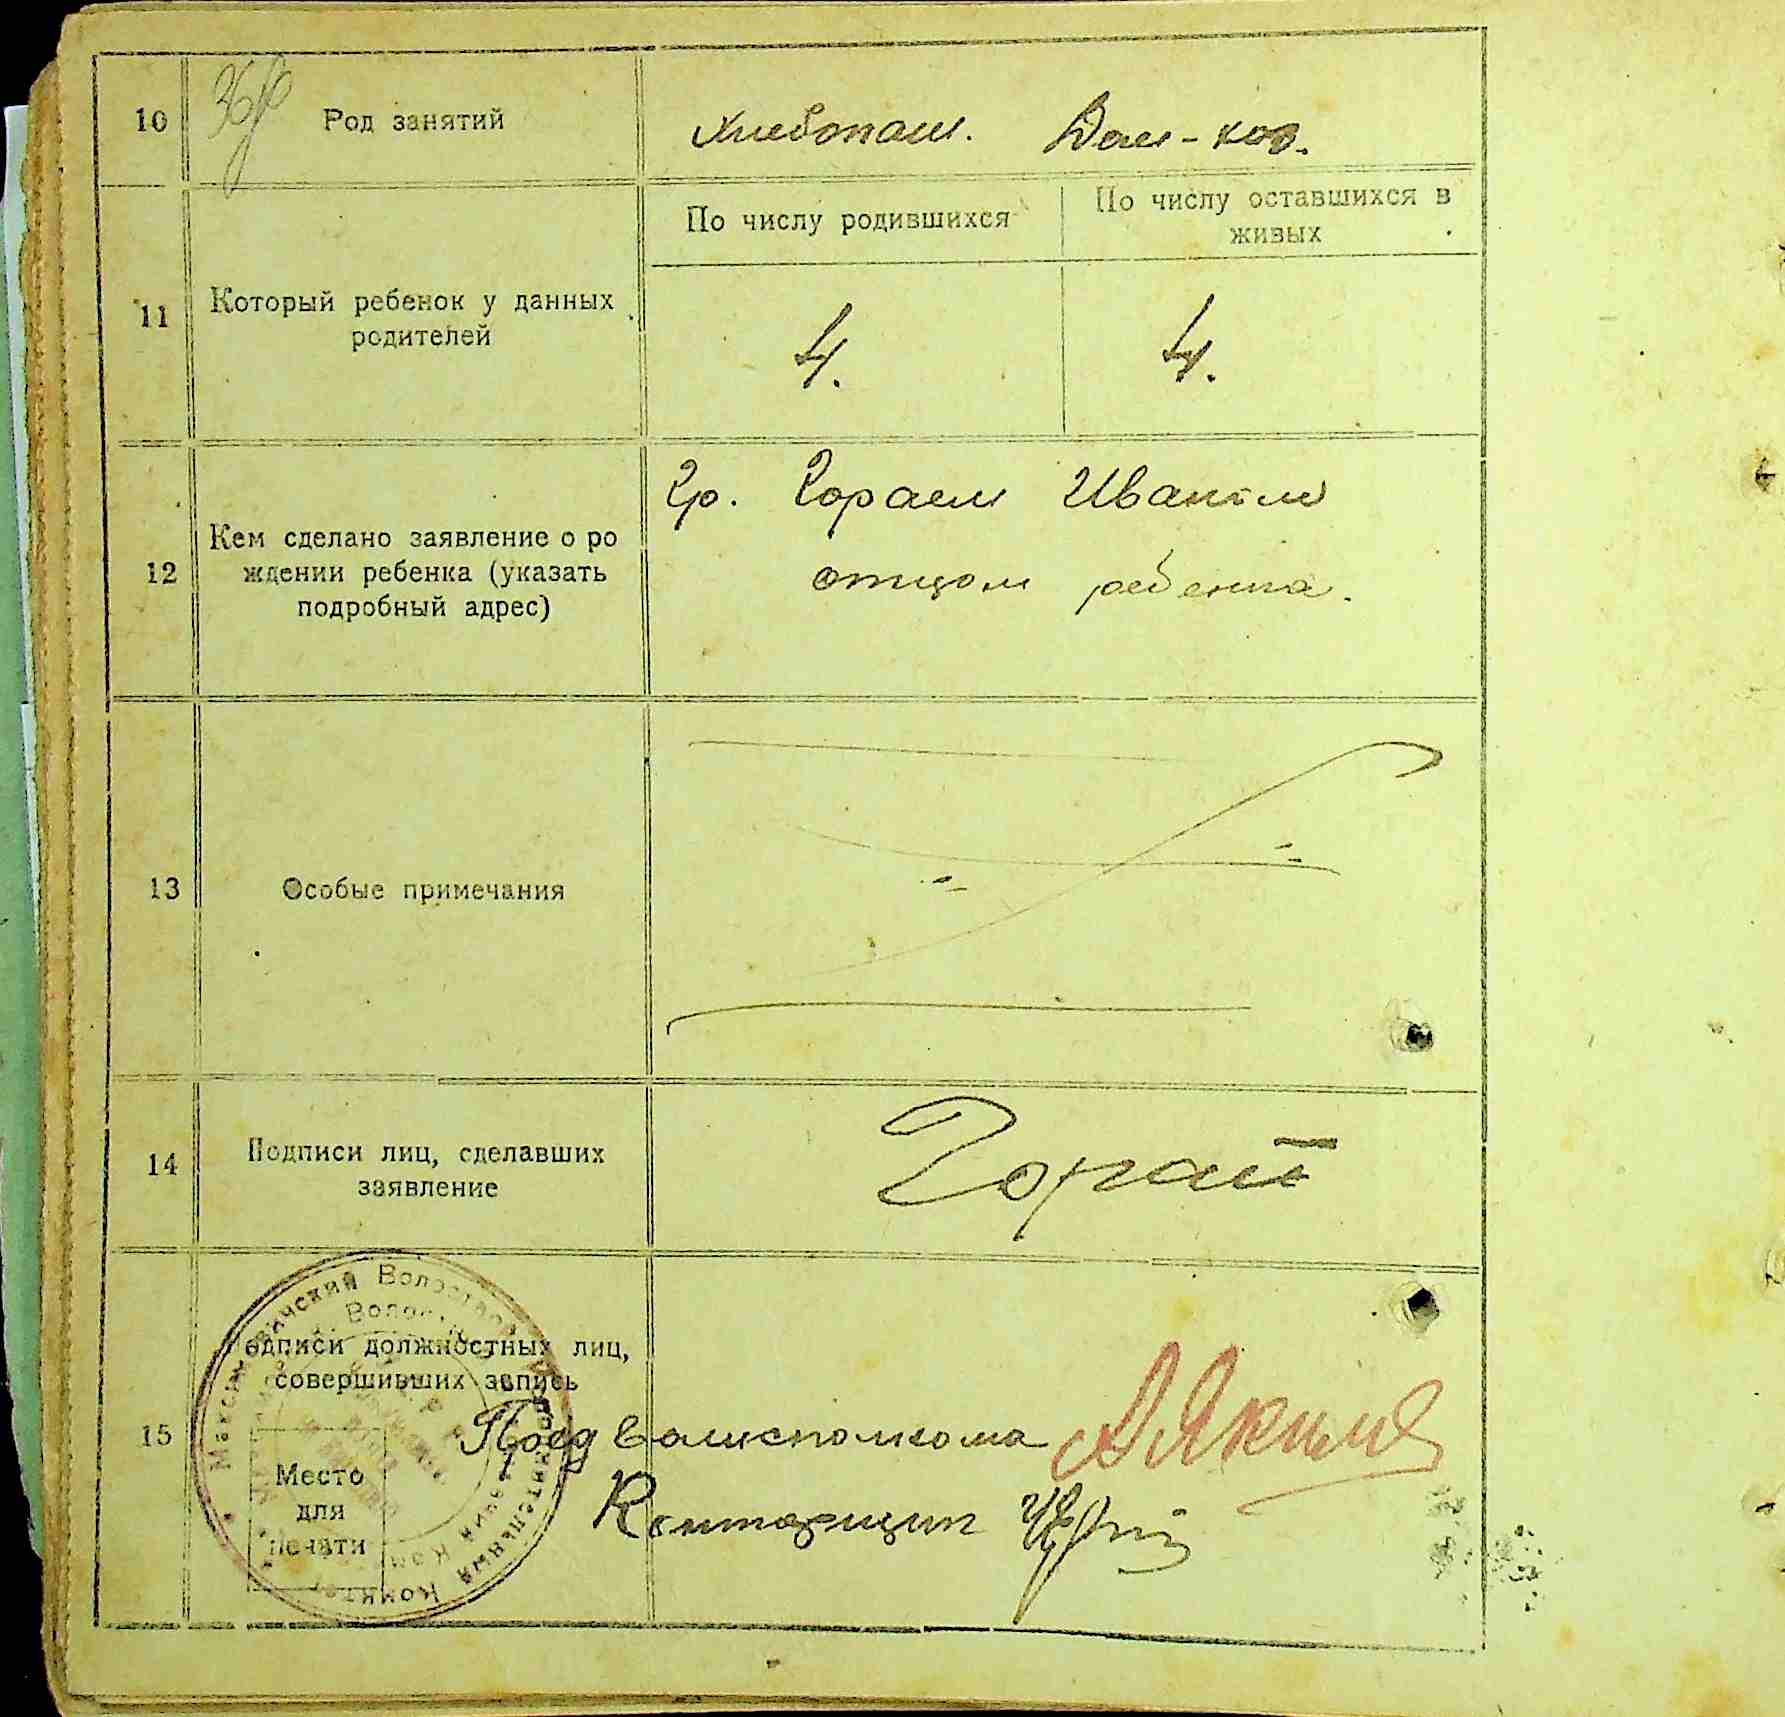 10
Род занятий
Хлебопаш. Дом-хоз.
11
Который ребенок у данных
родителей
По числу родившихся
По числу оставшихся в
живых
4.
4.
12
Кем сделано заявление о ро
ждении ребенка (указать
подробный адрес)
Гр. Гораем Иваном
отцом ребенка.
13
Особые примечания
14
Подписи лиц, сделавших
заявление
Горай
15
Подписи должностных лиц,
совершивших запись
Место
для
печати
Пред Волисполкома
Конторщик